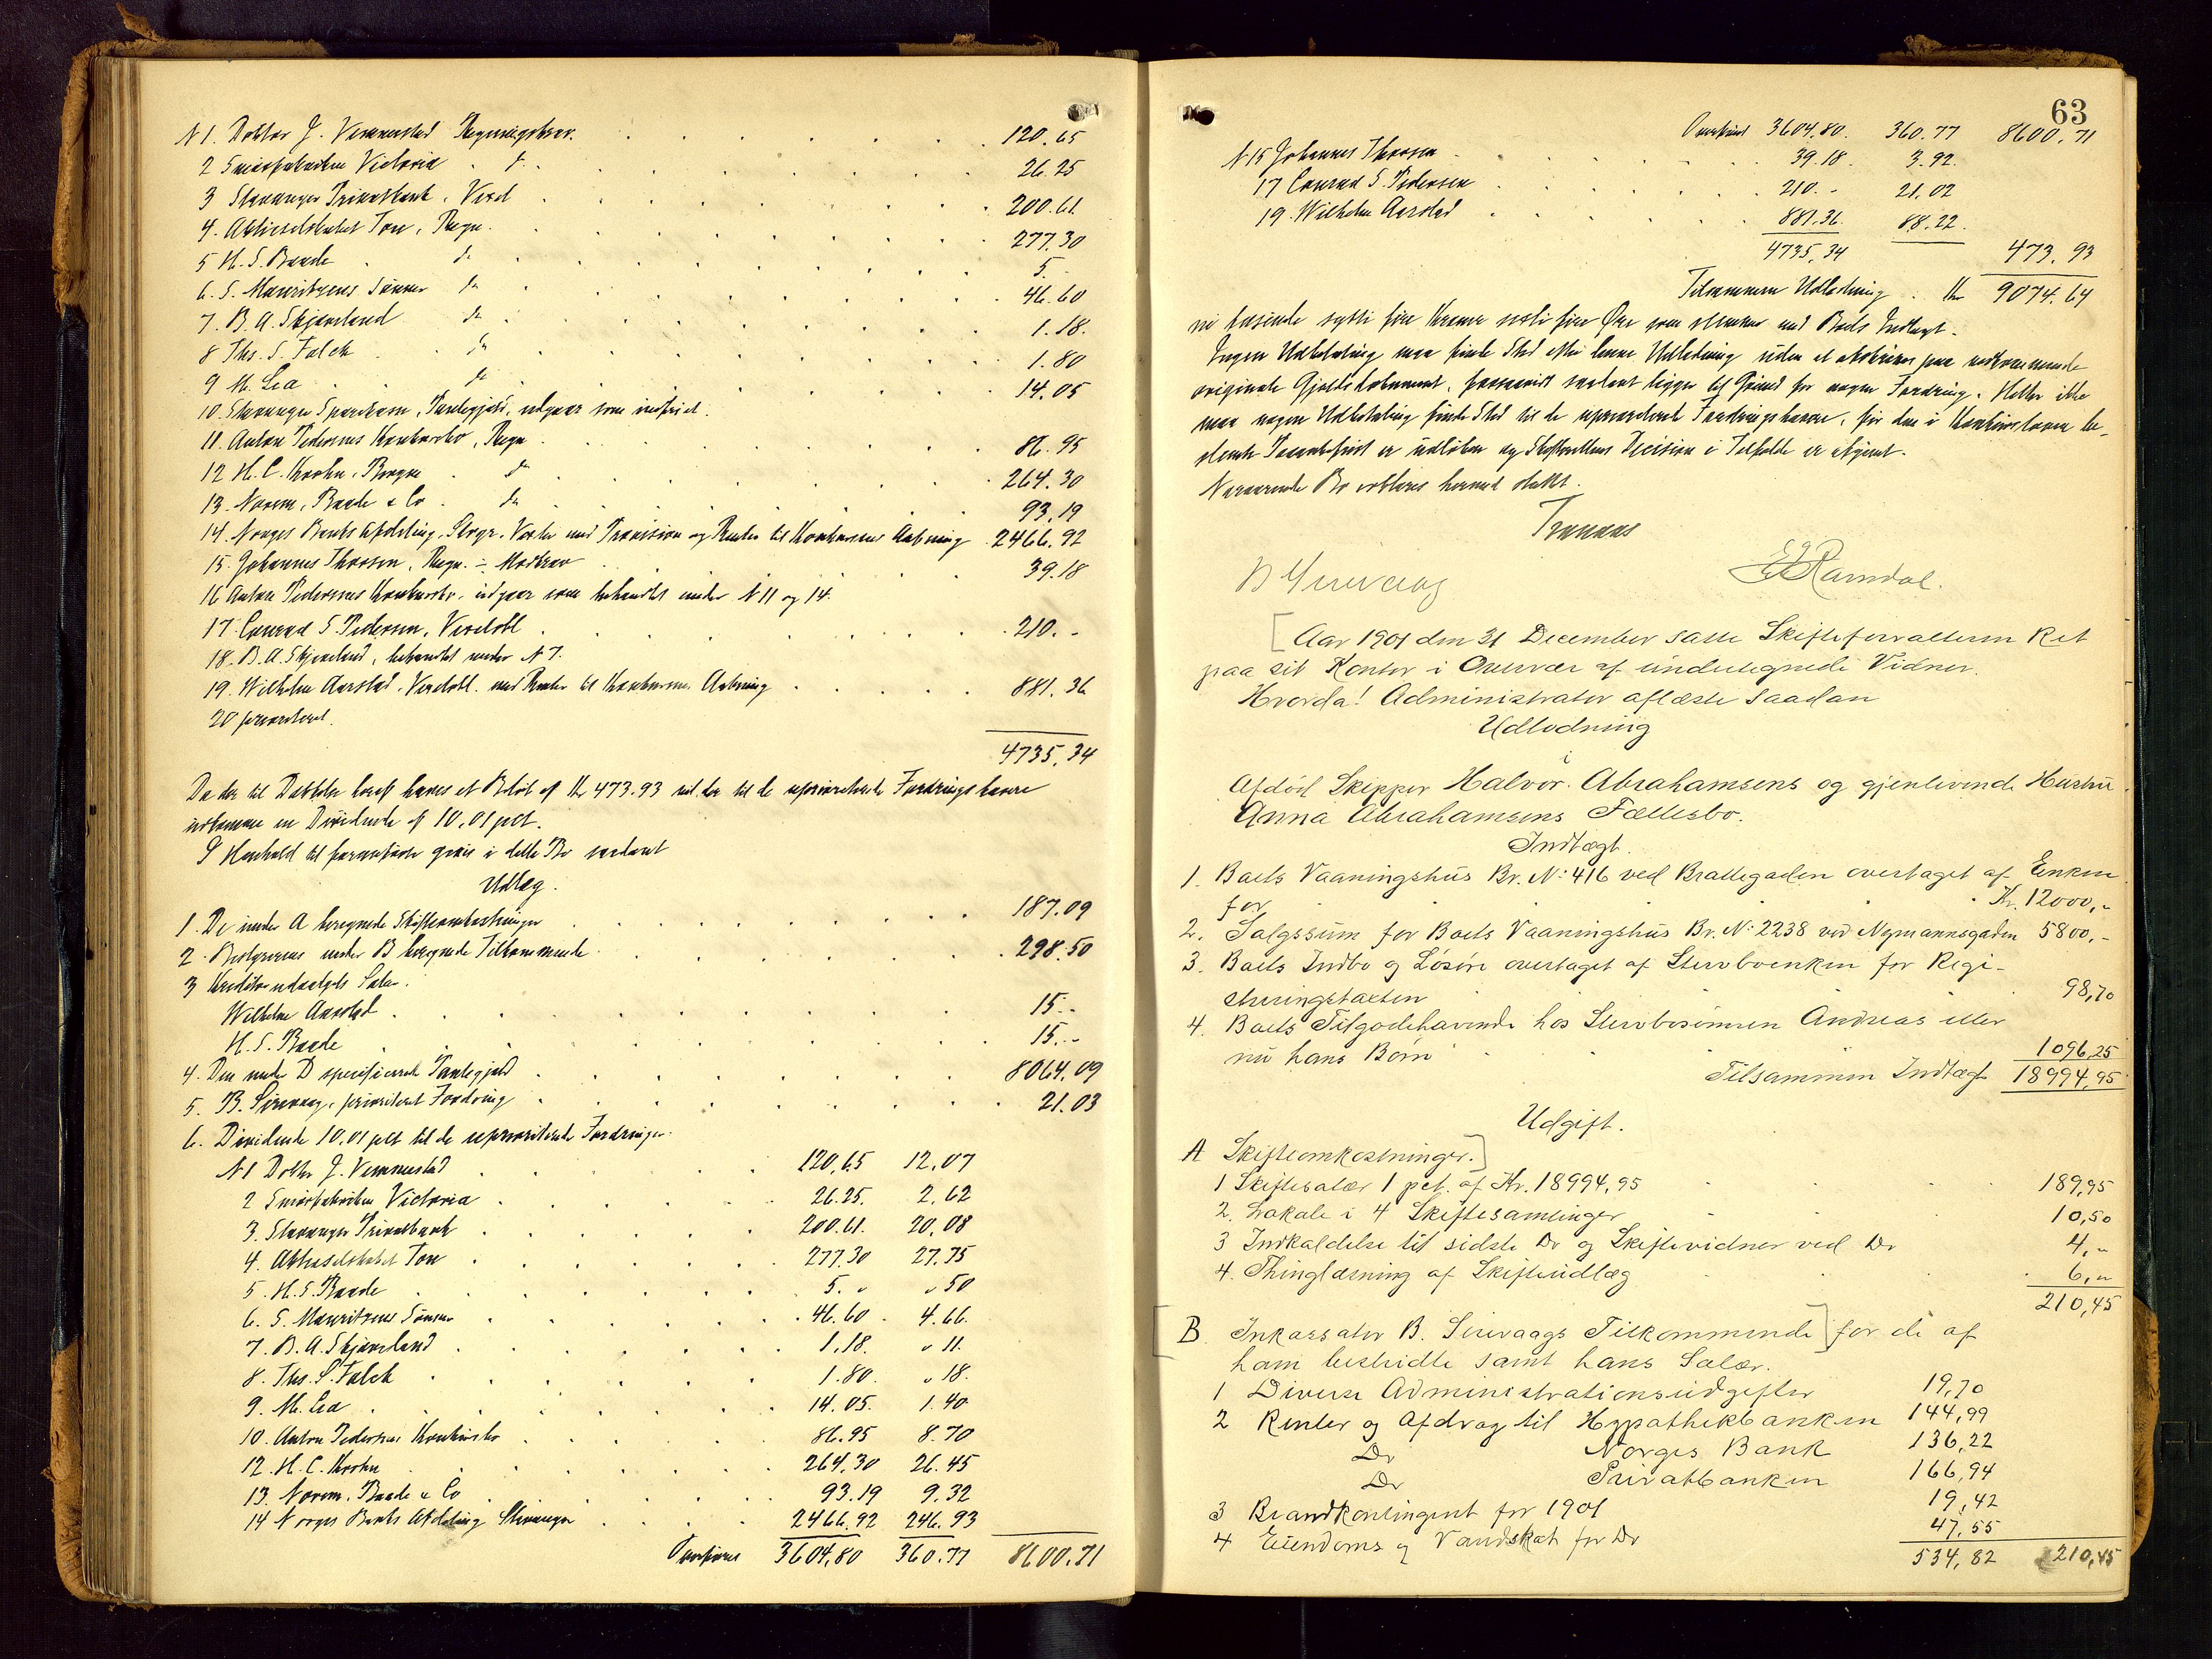 N 1. Doktor J. Vemmestad Regningskrav. 120.65
2 Smørfabriken Victoria . d. 26.25
3 Stavanger Privatbank, Vexel 200.61
4. Aktieselskabet Tou, Regn. 277.30
5 H. S. Baade do 5.-
6. S. Mauritzens Sønner do 46.60
7. B. A. Skjæveland do 1.18.
8 Ths. S. Falck do 1.80
9 M. Lea do 14.05
10. Stavanger Sparekasse, Pantegjæld, udgaar som indfriet.
11. Anton Pedersens Konkursbo, Regn 86.95
12 H. C. Krohn, Bergen do 264.30
13. Norem, Baade & Co do 93.19
14. Norges Banks Afdeling, Stvgr. Vexler med Provision og Renter til Konkursens Aabning 2466.92
15. Johannes Thorsen, Regn. ÷ Modkrav 39.18
16 Anton Pedersens Konkursbo, udgaar som behandlet under N 11 og 14.
17. Conrad S. Pedersen, Vexelobl. 210.-
18. B. A. Skjæveland, behandlet under N 7.
19. Wilhelm Aarstad, Vexelobl. med Renter til Konkursens Aabning 881.36
20 prioriteret.
4735.34
Da der til Dækkelse heraf haves et Beløb af Kr 473.93 vil der til de uprioriterede Fordringshavere
udkomme en Dividende af 10,01 pct.
I Henhold til foranførte gjøres i dette Bo saadant
Udlæg.
1. De under A beregnede Skifteomkostninger 187.09
2. Bestyrerens under B beregnede Tilkommende 298.50
3 Kreditorudvalgets Salær.
Wilhelm Aarstad 15.-
H. S. Baade 15.-
4. Den under D specificerede Pantegjæld 8064.09
5. B. Sirevaag, prioriteret Fordring 21.03
6. Dividende 10,01 pct til de uprioriterede Fordringer.
N 1 Doktor J. Vemmestad 120,65 12.07
2 Smørfabriken Victoria 26.25. 2.62
3. Stavanger Privatbank 200.61. 20.08
4. Aktieselskabet Tou 277.30 27.75
5. H. S. Baade 5. " " 50
6. S. Mauritzens Sønner 46.60 4.66.
7. B. A. Skjæveland 1.18. " 11.
8. Ths. S. Falck 1.80. " 18.
9. M. Lea 14.05. 1.40.
10. Anton Pedersens Konkursbo 86.95 8.70
12. H. C. Krohn 264.30 26.45
13. Norem, Baade & Co 93.19 9.32
14 Norges Banks Afdeling Stavanger 2466.92 246.93
Overføres 3604,80 360.77 8600.71
63
Overført 3604.80. 360.77 8600.71
N 15 Johannes Thorsen 39.18. 3.92.
17 Conrad S. Pedersen 210.- 21,02
19. Wilhelm Aarstad 881.36. 88.22.
4735,34 473.93
Tilsammen Udlodning . Kr 9074.64
ni tusinde sytti fire Kroner sexti fire Øre som stemmer med Boets Indtægt.
Ingen Udbetaling maa finde Sted efter denne Udlodning uden at afskrives paa vedkommende
originale Gjældsdokument, forsaavidt saadant ligger til Grund for nogen Fordring. Heller ikke
maa nogen Udbetaling finde Sted til de uprioriterede Fordringshavere, før den i Konkursloven be-
stemte Paaankefrist er udløben og Skifterettens Decision i Tilfælde er afgivet.
Nærværende Bo erklæres hermed sluttet.
B Sirevaag E Ramdal.
[Aar 1901 den 31 December satte Skifteforvalteren Ret
paa sit Kontor i Overvær af undertegnede Vidner.
Hvorda! Administrator aflæste saadan
Udlodning
i
Afdød Skipper Halvor Abrahamsens og gjenlevende Hustru
Anna Abrahamsens Fællesbo.
Indtægt.
1. Boets Vaaningshus Br. N: 416 ved Brattegaden overtaget af Enken
for Kr. 12000,-
2. Salgssum for Boets Vaaningshus Br. N: 2238 ved Nymannsgaden 5800,-
3. Boets Indbo og Løsøre overtaget af Stervboenken for Regi-
streringstaxten 98,70
4. Boets Tilgodehavende hos Stervbosønnen Andreas eller
nu hans Børn 1096,25
Tilsammen Indtægt 18994,95
Udgift.
A Skifteomkostninger.]
1 Skiftesalær 1 pct. af Kr. 18994,95 189,95
2. Lokale i 4 Skiftesamlinger 10,50
3 Indkaldelse til sidste Do og Skiftevidner ved Do 4,-
4. Thinglæsning af Skifteudlæg 6,-
210,45
[B. Inkassator B. Sirevaags Tilkommende] for de af
ham bestridte samt hans Salær.
1 Diverse Administrationsudgifter 19,70
2 Renter og Afdrag til Hypothekbanken 144,99
Do Norges Bank 136,22
Do Privatbanken 166,94
3 Brandkontingent for 1901 19,42
4 Eiendoms og Vandskat for Do 47,55
534,82 210,45